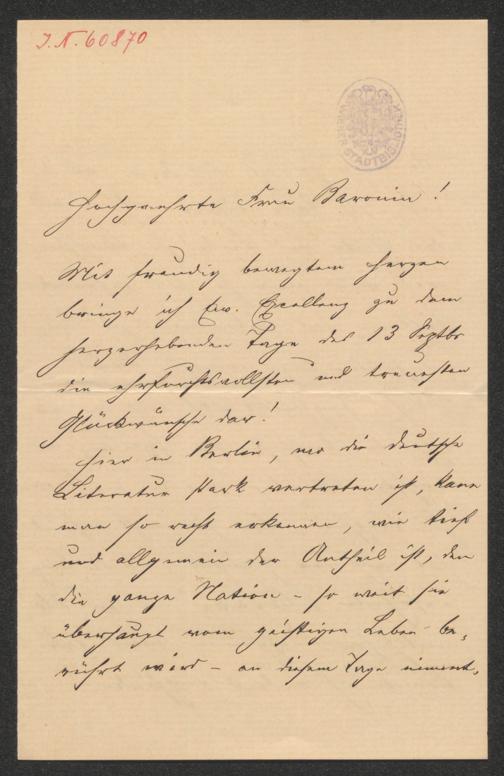 I.N. 60870
WIENER STADTBIBLIOTHEK
Hochgeehrte Frau Baronin!
Mit freudig bewegtem Herzen
bringe ich Ew. Excellenz zu dem
herzerhebenden Tage des 13 Septbr
die ehrfurchtsvollsten und treuesten
Glückwünsche dar!
Hier in Berlin, wo die deutsche
Literatur stark vertreten ist, kann
man so recht erkennen, wie tief
und allgemein der Antheil ist, den
die ganze Nation – so weit sie
überhaupt vom geistigen Leben be-
rührt wird – an diesem Tage nimmt,